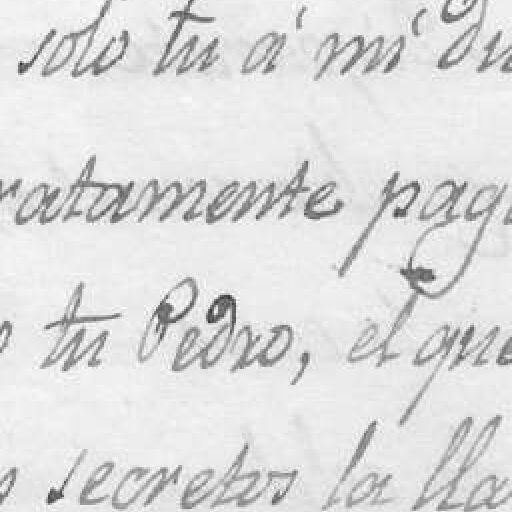 solo tu á mí du
ratamente pag
tu Pedro, el que
secretos la lla